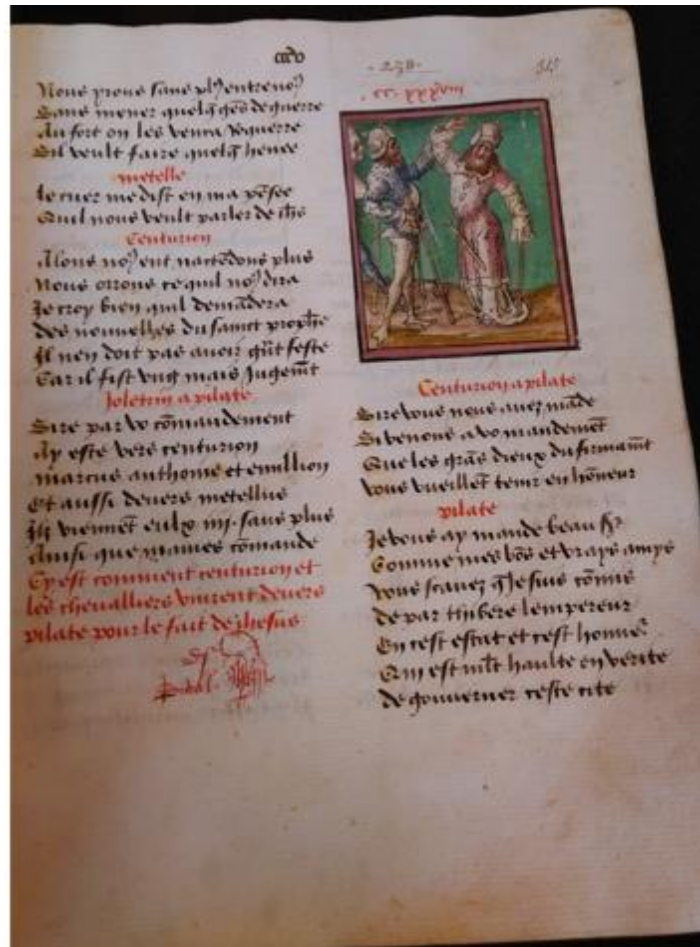 Nous yrons sans plꝰ entre noꝰ
Sans mener quelq̃ gẽs de guerre
Au fort on les venra requerre
Sil veult faire quelq̃
metelle
Le cuer me dist en ma pẽsee
Quil nous veult parler de ihs
Centurion
Alons noꝰ ent nactẽdons plus
Nous orrons ce quil noꝰ dira
Je croy bien quil demãdera
des nouvelles du sainct prophẽ
Il nen doit pas avoir feste
Car il fist ung mais Jugemẽt
Joletrin a pilate
Sire par vo cõmandement
Ay este vers centurion
marcus anthonie et emillion
Et aussi devers metellus
Ilz viennẽt eulx iiij. sans plus
Ainsi que mavies cõmande
Cy est comment centurion et
les chevalliers vinrent devers
pilate pour le fait de jhesus
238
cc. xxxviii
Centurion a pilate
Sire vous nous avez mãde
Si venons a vo mandemẽt
Que les grãs dieux du firmamẽt
vous vueillẽt tenir en hõneur
pilate
Je vous ay mande beau
Comme mes bõs et vrays amys
vous scavez qͥ Je suis cõmis
de par tinbere lempereur
En cest estat et cest honneʳ
Qui est mlt haulte en verite
de gouverner ceste cite